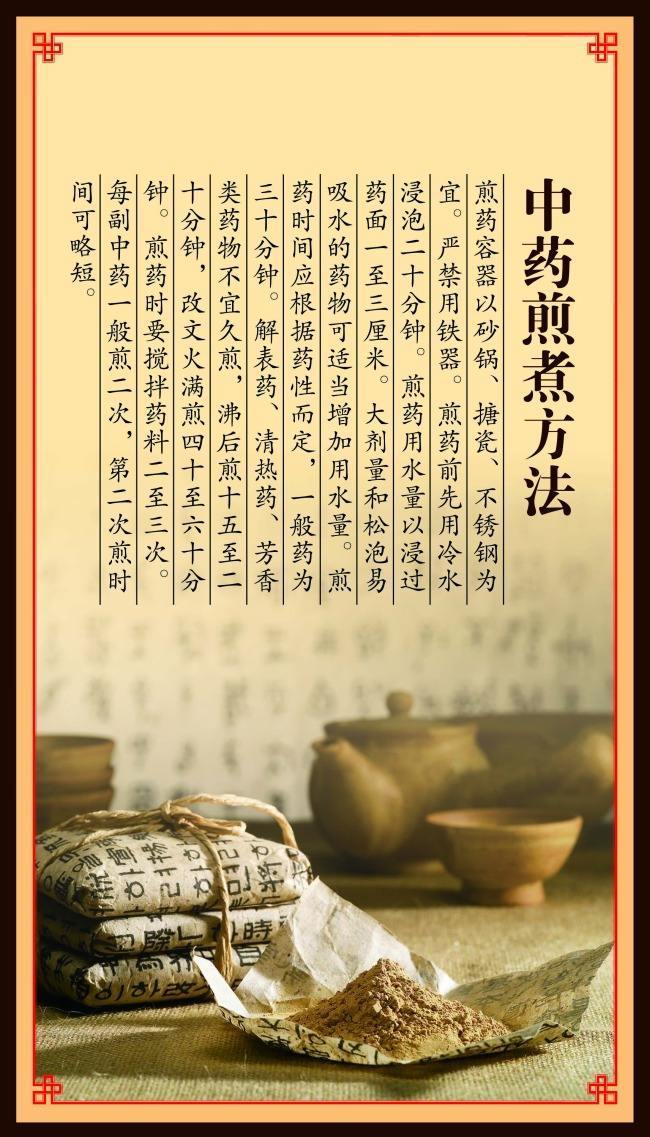 中药煎煮方法
煎药容器以砂锅、搪瓷、不锈钢为
宜。严禁用铁器。煎药前先用冷水
浸泡二十分钟。煎药用水量以浸过
药面一至三厘米。大剂量和松泡易
吸水的药物可适当增加用水量。煎
药时间应根据药性而定，一般药为
三十分钟。解表药、清热药、芳香
类药物不宜久煎，沸后煎十五至二
十分钟，改文火满煎四十至六十分
钟。煎药时要搅拌药料二至三次。
每副中药一般煎二次，第二次煎时
间可略短。